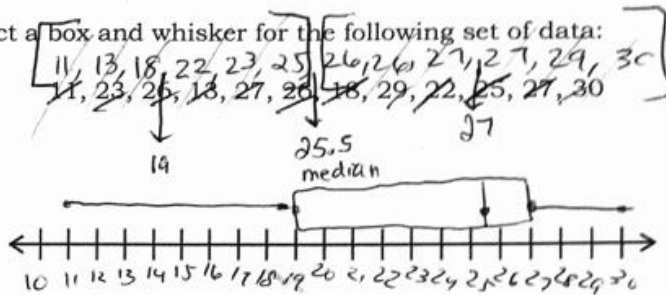 ct a box and whisker for the following set of data:
11, 13, 18, 22, 23, 25, 26, 26, 27, 27, 29, 30
11, 23, 26, 13, 27, 26, 18, 29, 22, 25, 27, 30
19 25.5 27
median
10 11 12 13 14 15 16 17 18 19 20 21 22 23 24 25 26 27 28 29 30